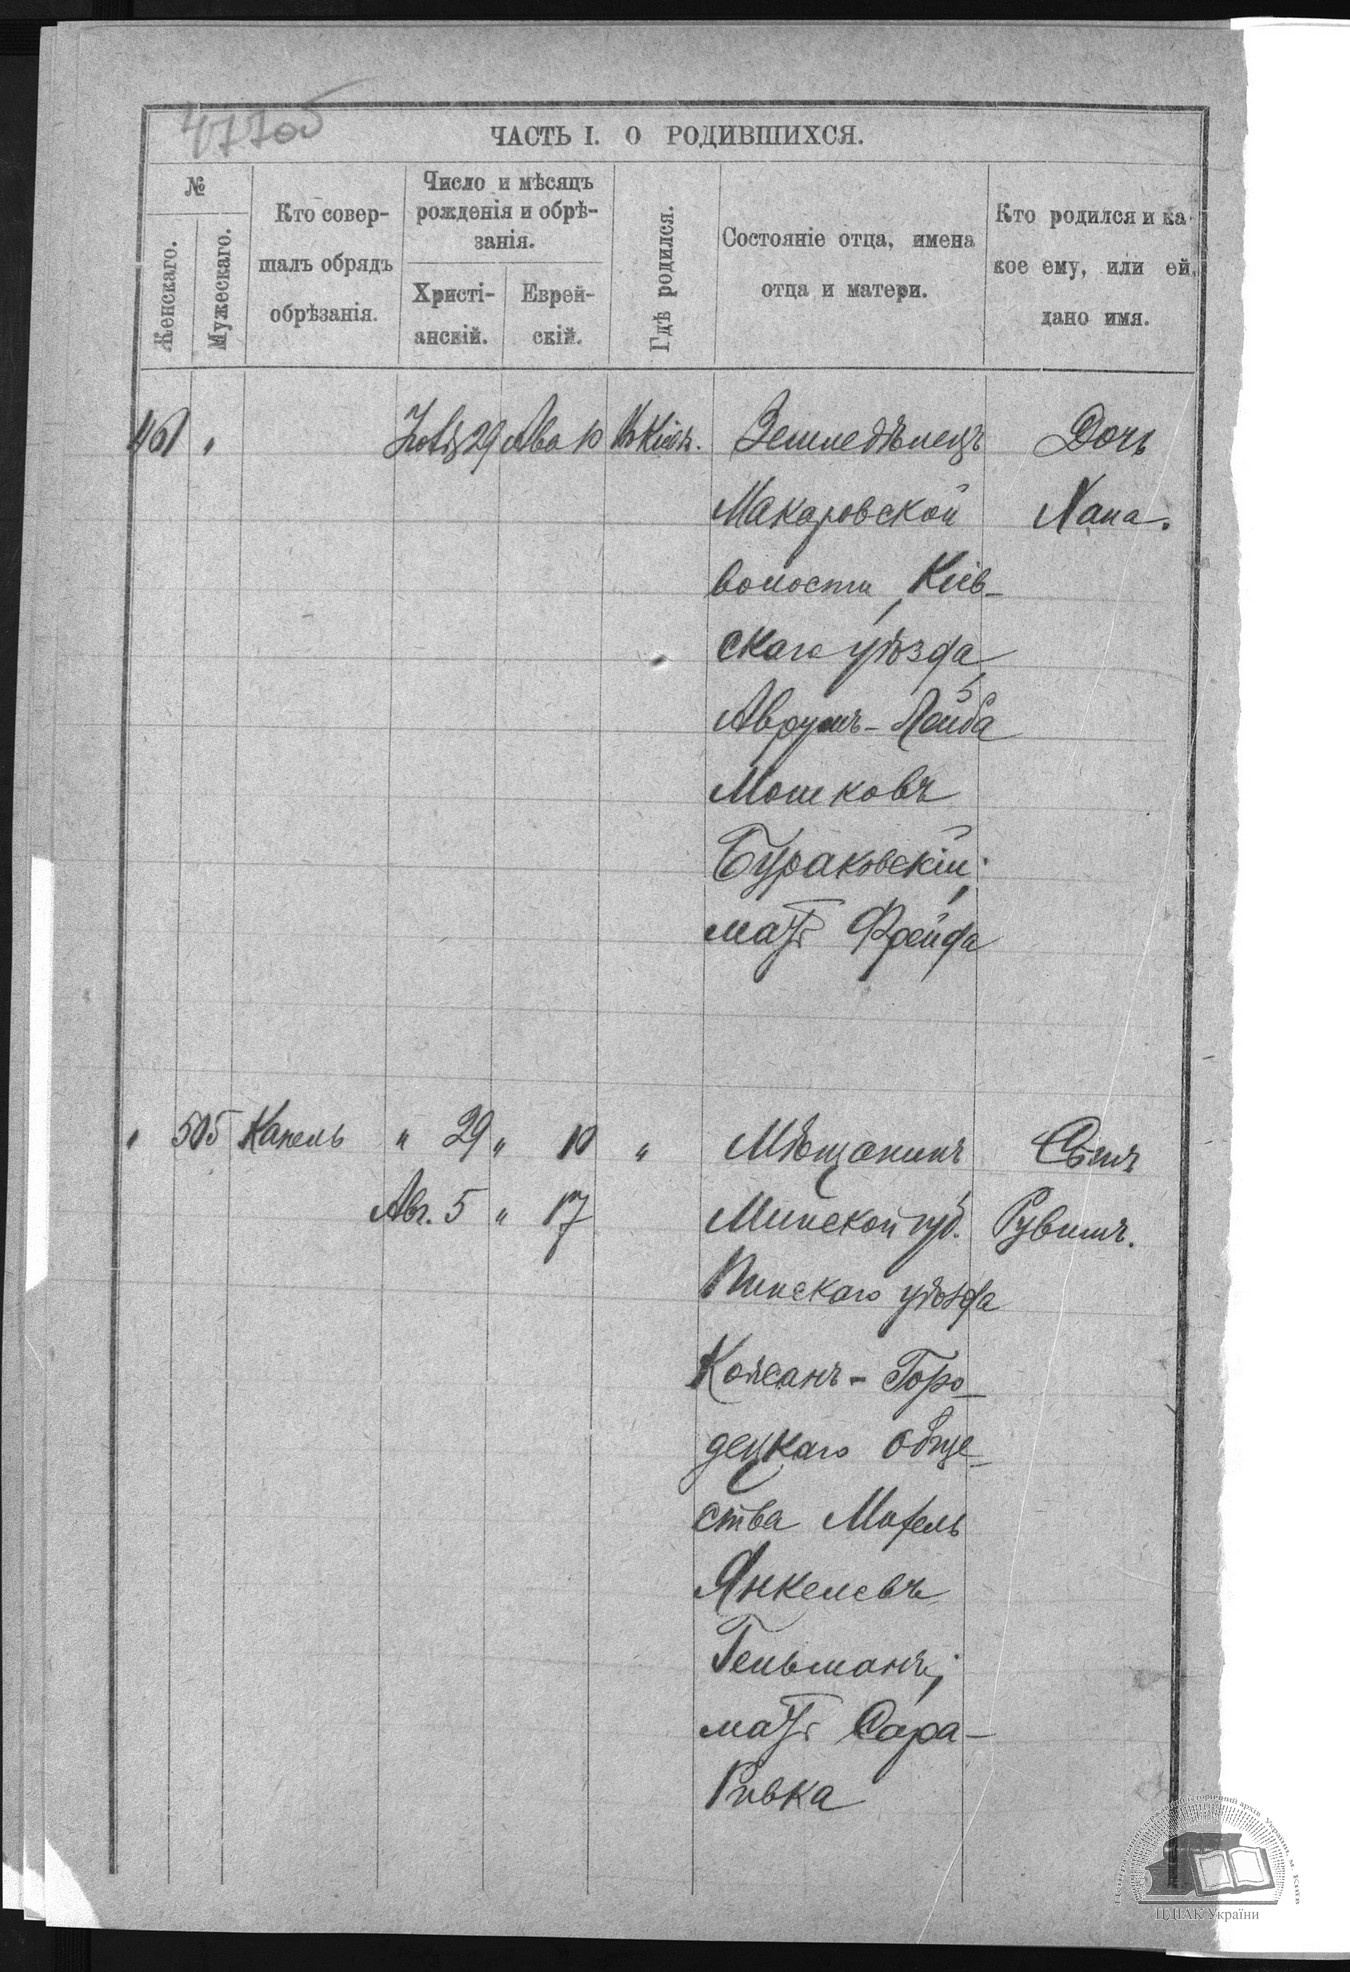 477об
ЧАСТЬ I. О РОДИВШИХСЯ.
№
Женскаго.
Мужескаго.
Кто совер-
шалъ обрядъ
обрѣзанія.
Число и мѣсяцъ
рожденія и обрѣ-
занія.
Христі-
анскій.
Еврей-
скій.
Гдѣ родился.
Состояніе отца, имена
отца и матери.
Кто родился и ка-
кое ему, или ей,
дано имя.
461 " 29 Ава 10 Въ Кіевѣ. Земледѣлецъ Дочь
Макаровской Хана.
волости, Кіев-
скаго уѣзда,
Аврумъ-Лейба
Мошковъ
Бураковскій;
мать Фрейда
" 505 Капель " 29 " 10 " Мѣщанинъ Сынъ
Авг. 5 " 17 Минской губ. Рувимъ.
Пинскаго уѣзда
Кожанъ-Горо-
децкаго обще-
ства Мотель
Янкелевъ
Гельманъ;
мать Сара-
Ривка
ЦДІАК України